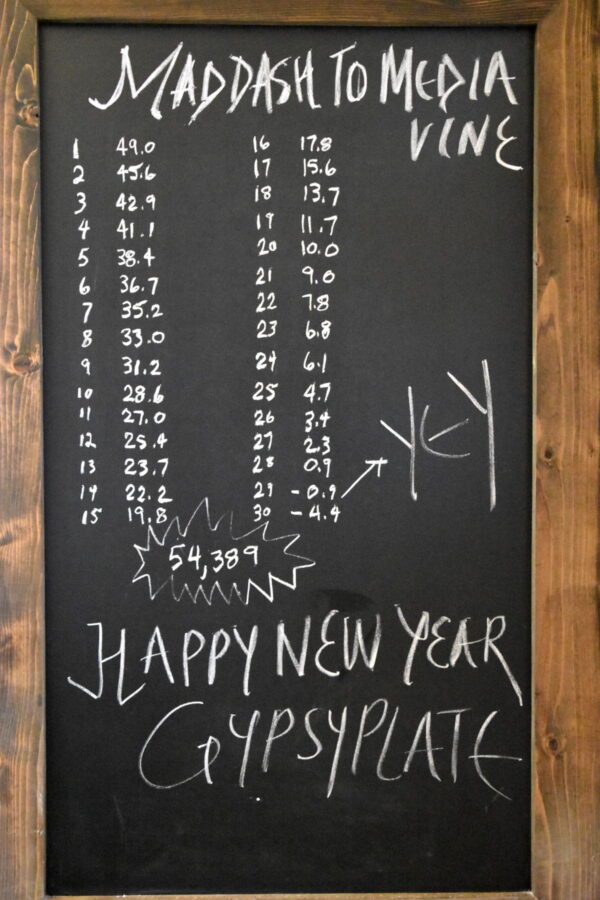 MADDASH TO MEDIA
VINE
1 49.0
2 45.6
3 42.9
4 41.1
5 38.4
6 36.7
7 35.2
8 33.0
9 31.2
10 28.6
11 27.0
12 25.4
13 23.7
14 22.2
15 19.8
16 17.8
17 15.6
18 13.7
19 11.7
20 10.0
21 9.0
22 7.8
23 6.8
24 6.1
25 4.7
26 3.4
27 2.3
28 0.9
29 -0.9
30 -4.4
YEY
54,389
HAPPY NEW YEAR
GYPSYPLATE